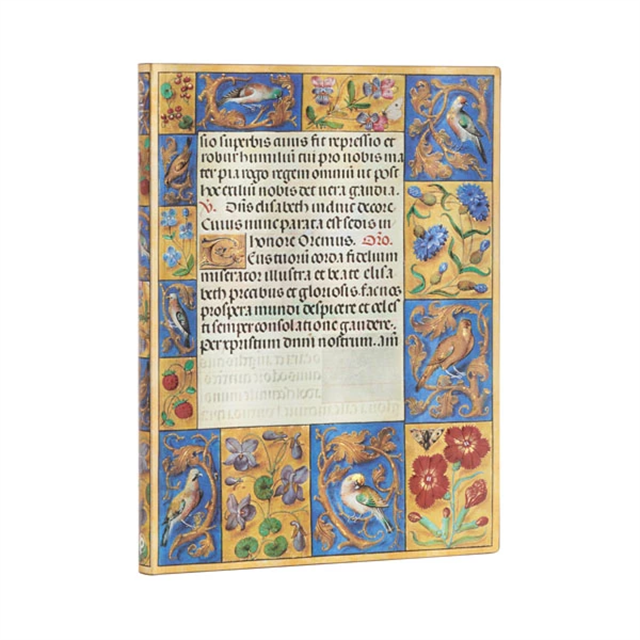 sio superbis cuius fit repressio et
robur humiliū cui pro nobis ma
ter pia rogo regem omniū ut post
hoc exiliū nobis det vera gaudia.
V. Dn̄s elisabeth induit decore
Cuius nunc parata est sedis in
honore Oremus. Oro.
Eus tuorū corda fidelium
miserator illustra et beate elisa
beth precibus et gloriosis. fac nos
prospera mundi despicere et celes
ti semper consolatione gaudere.
Per xpristum dnm̄ nostrum. Am̄